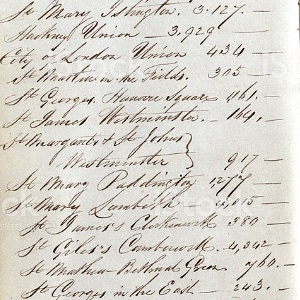 St Mary Islington. 3.127. —
Hackney Union — 3.929
City of London Union 434 —
St Martin in the Fields. 305 —
St Georges Hanover Square 461. —
St James Westminster. — 164. —
St Margarets & St Johns
Westminster } 917 —
St Mary Paddington 1277 —
St Mary Lambeth 4,015 —
St James's Clerkenwell 380 —
St Giles's Camberwell — 4,342 —
St Mathew Bethnal Green 760. —
St Georges in the East — 243. —